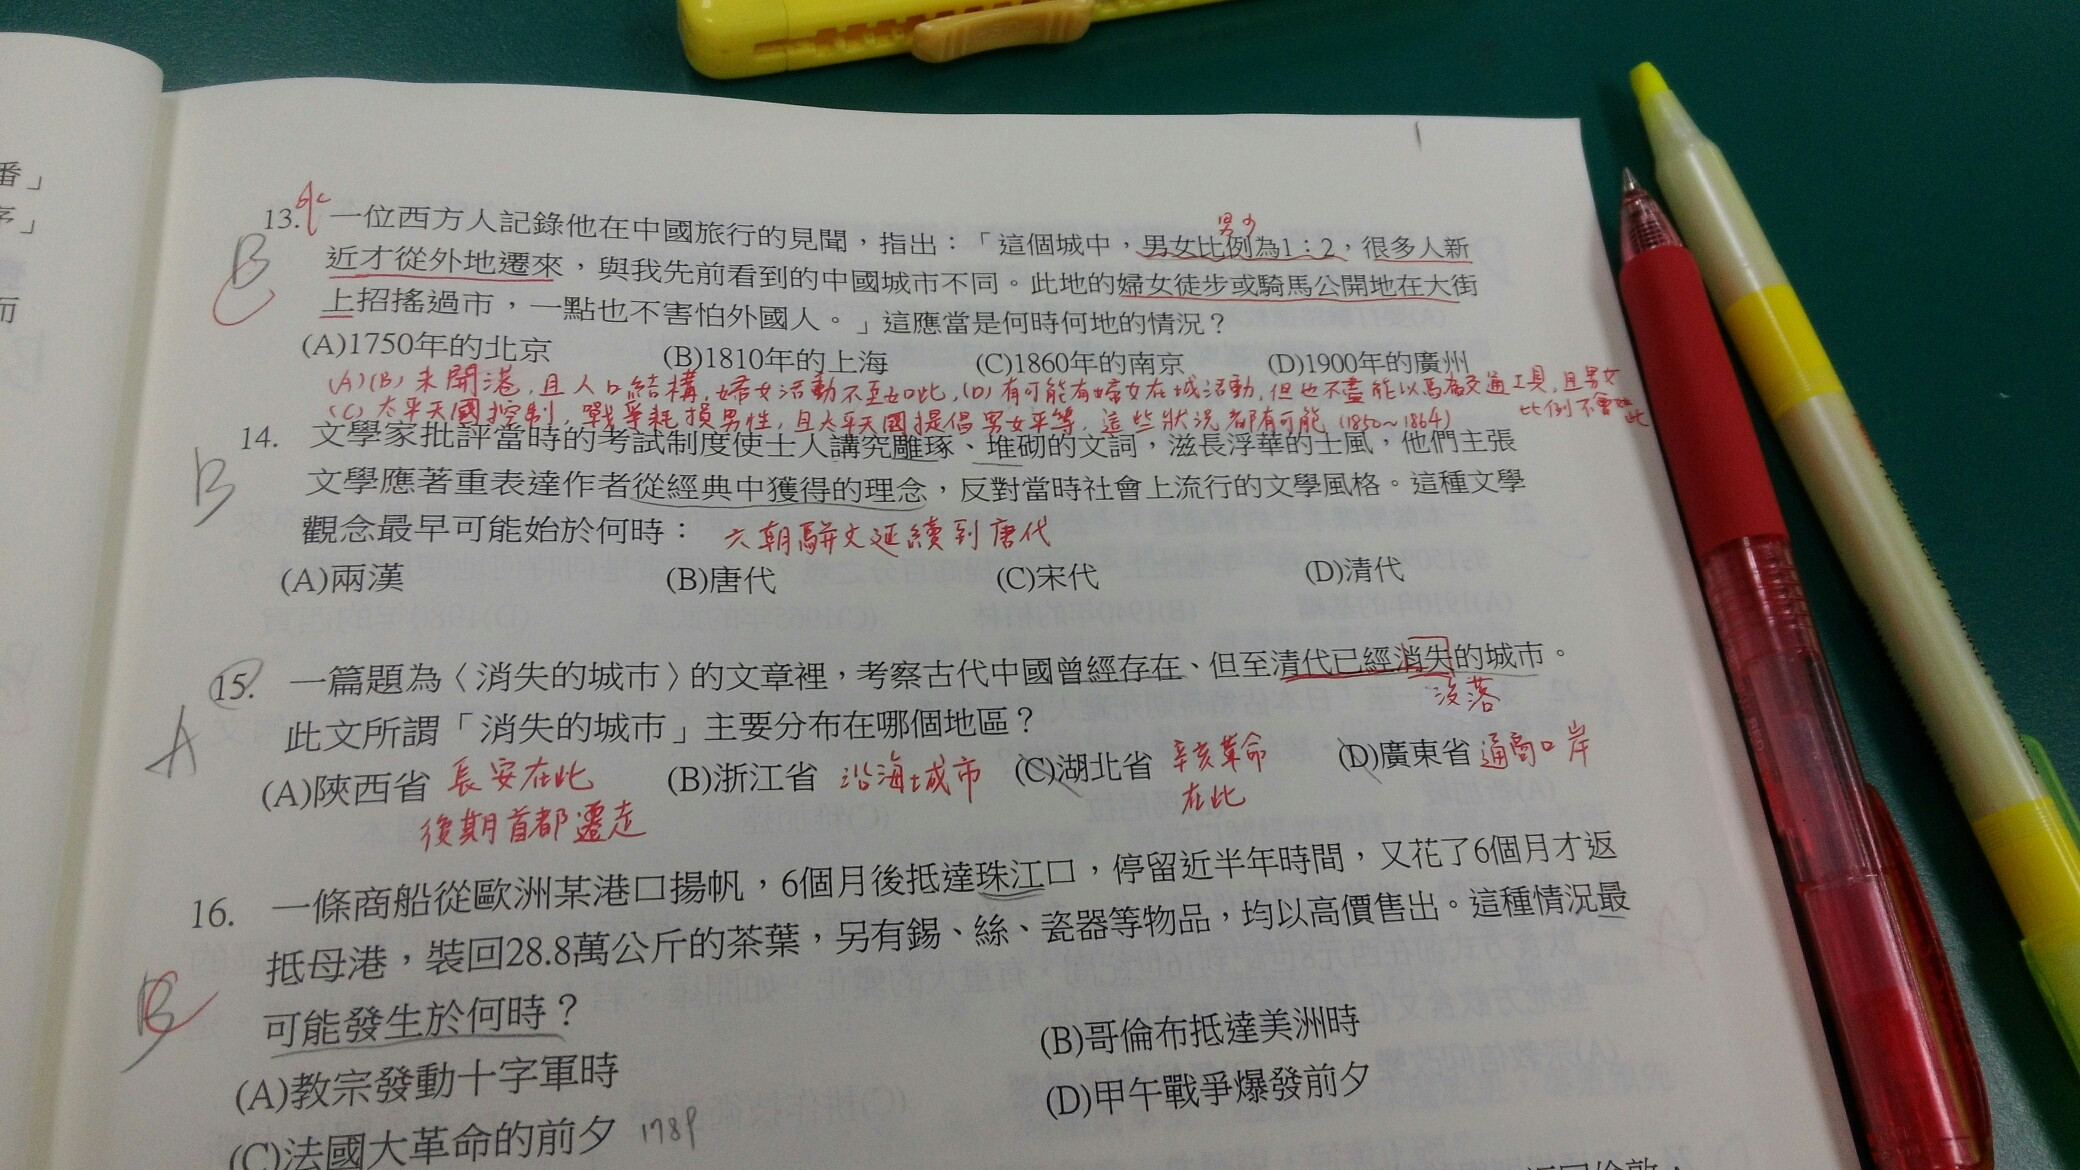 番」
序」
而
13. 一位西方人記錄他在中國旅行的見聞,指出:「這個城中,男女比例為1:2,很多人新
男少
B
C
近才從外地遷來,與我先前看到的中國城市不同。此地的婦女徒步或騎馬公開地在大街
上招搖過市,一點也不害怕外國人。」這應當是何時何地的情況?
(A)1750年的北京 (B)1810年的上海 (C)1860年的南京 (D)1900年的廣州
(A)(B)未開港,且人口結構,婦女活動不至如此,(D)有可能有婦女在城活動,但也不盡能以馬為交通工具,且男女
比例不會如此
(C)太平天國控制,戰爭耗損男性,且太平天國提倡男女平等,這些狀況都有可能(1850~1864)
14. 文學家批評當時的考試制度使士人講究雕琢、堆砌的文詞,滋長浮華的士風,他們主張
B
文學應著重表達作者從經典中獲得的理念,反對當時社會上流行的文學風格。這種文學
觀念最早可能始於何時: 六朝駢文延續到唐代
(A)兩漢 (B)唐代 (C)宋代 (D)清代
15. 一篇題為〈消失的城市〉的文章裡,考察古代中國曾經存在、但至清代已經消失的城市。
沒落
A
此文所謂「消失的城市」主要分布在哪個地區?
(A)陝西省 長安在此 (B)浙江省 沿海城市 (C)湖北省 辛亥革命 (D)廣東省 通商口岸
後期首都遷走 在此
16. 一條商船從歐洲某港口揚帆,6個月後抵達珠江口,停留近半年時間,又花了6個月才返
抵母港,裝回28.8萬公斤的茶葉,另有錫、絲、瓷器等物品,均以高價售出。這種情況最
可能發生於何時?
(A)教宗發動十字軍時 (B)哥倫布抵達美洲時
(C)法國大革命的前夕 1789 (D)甲午戰爭爆發前夕